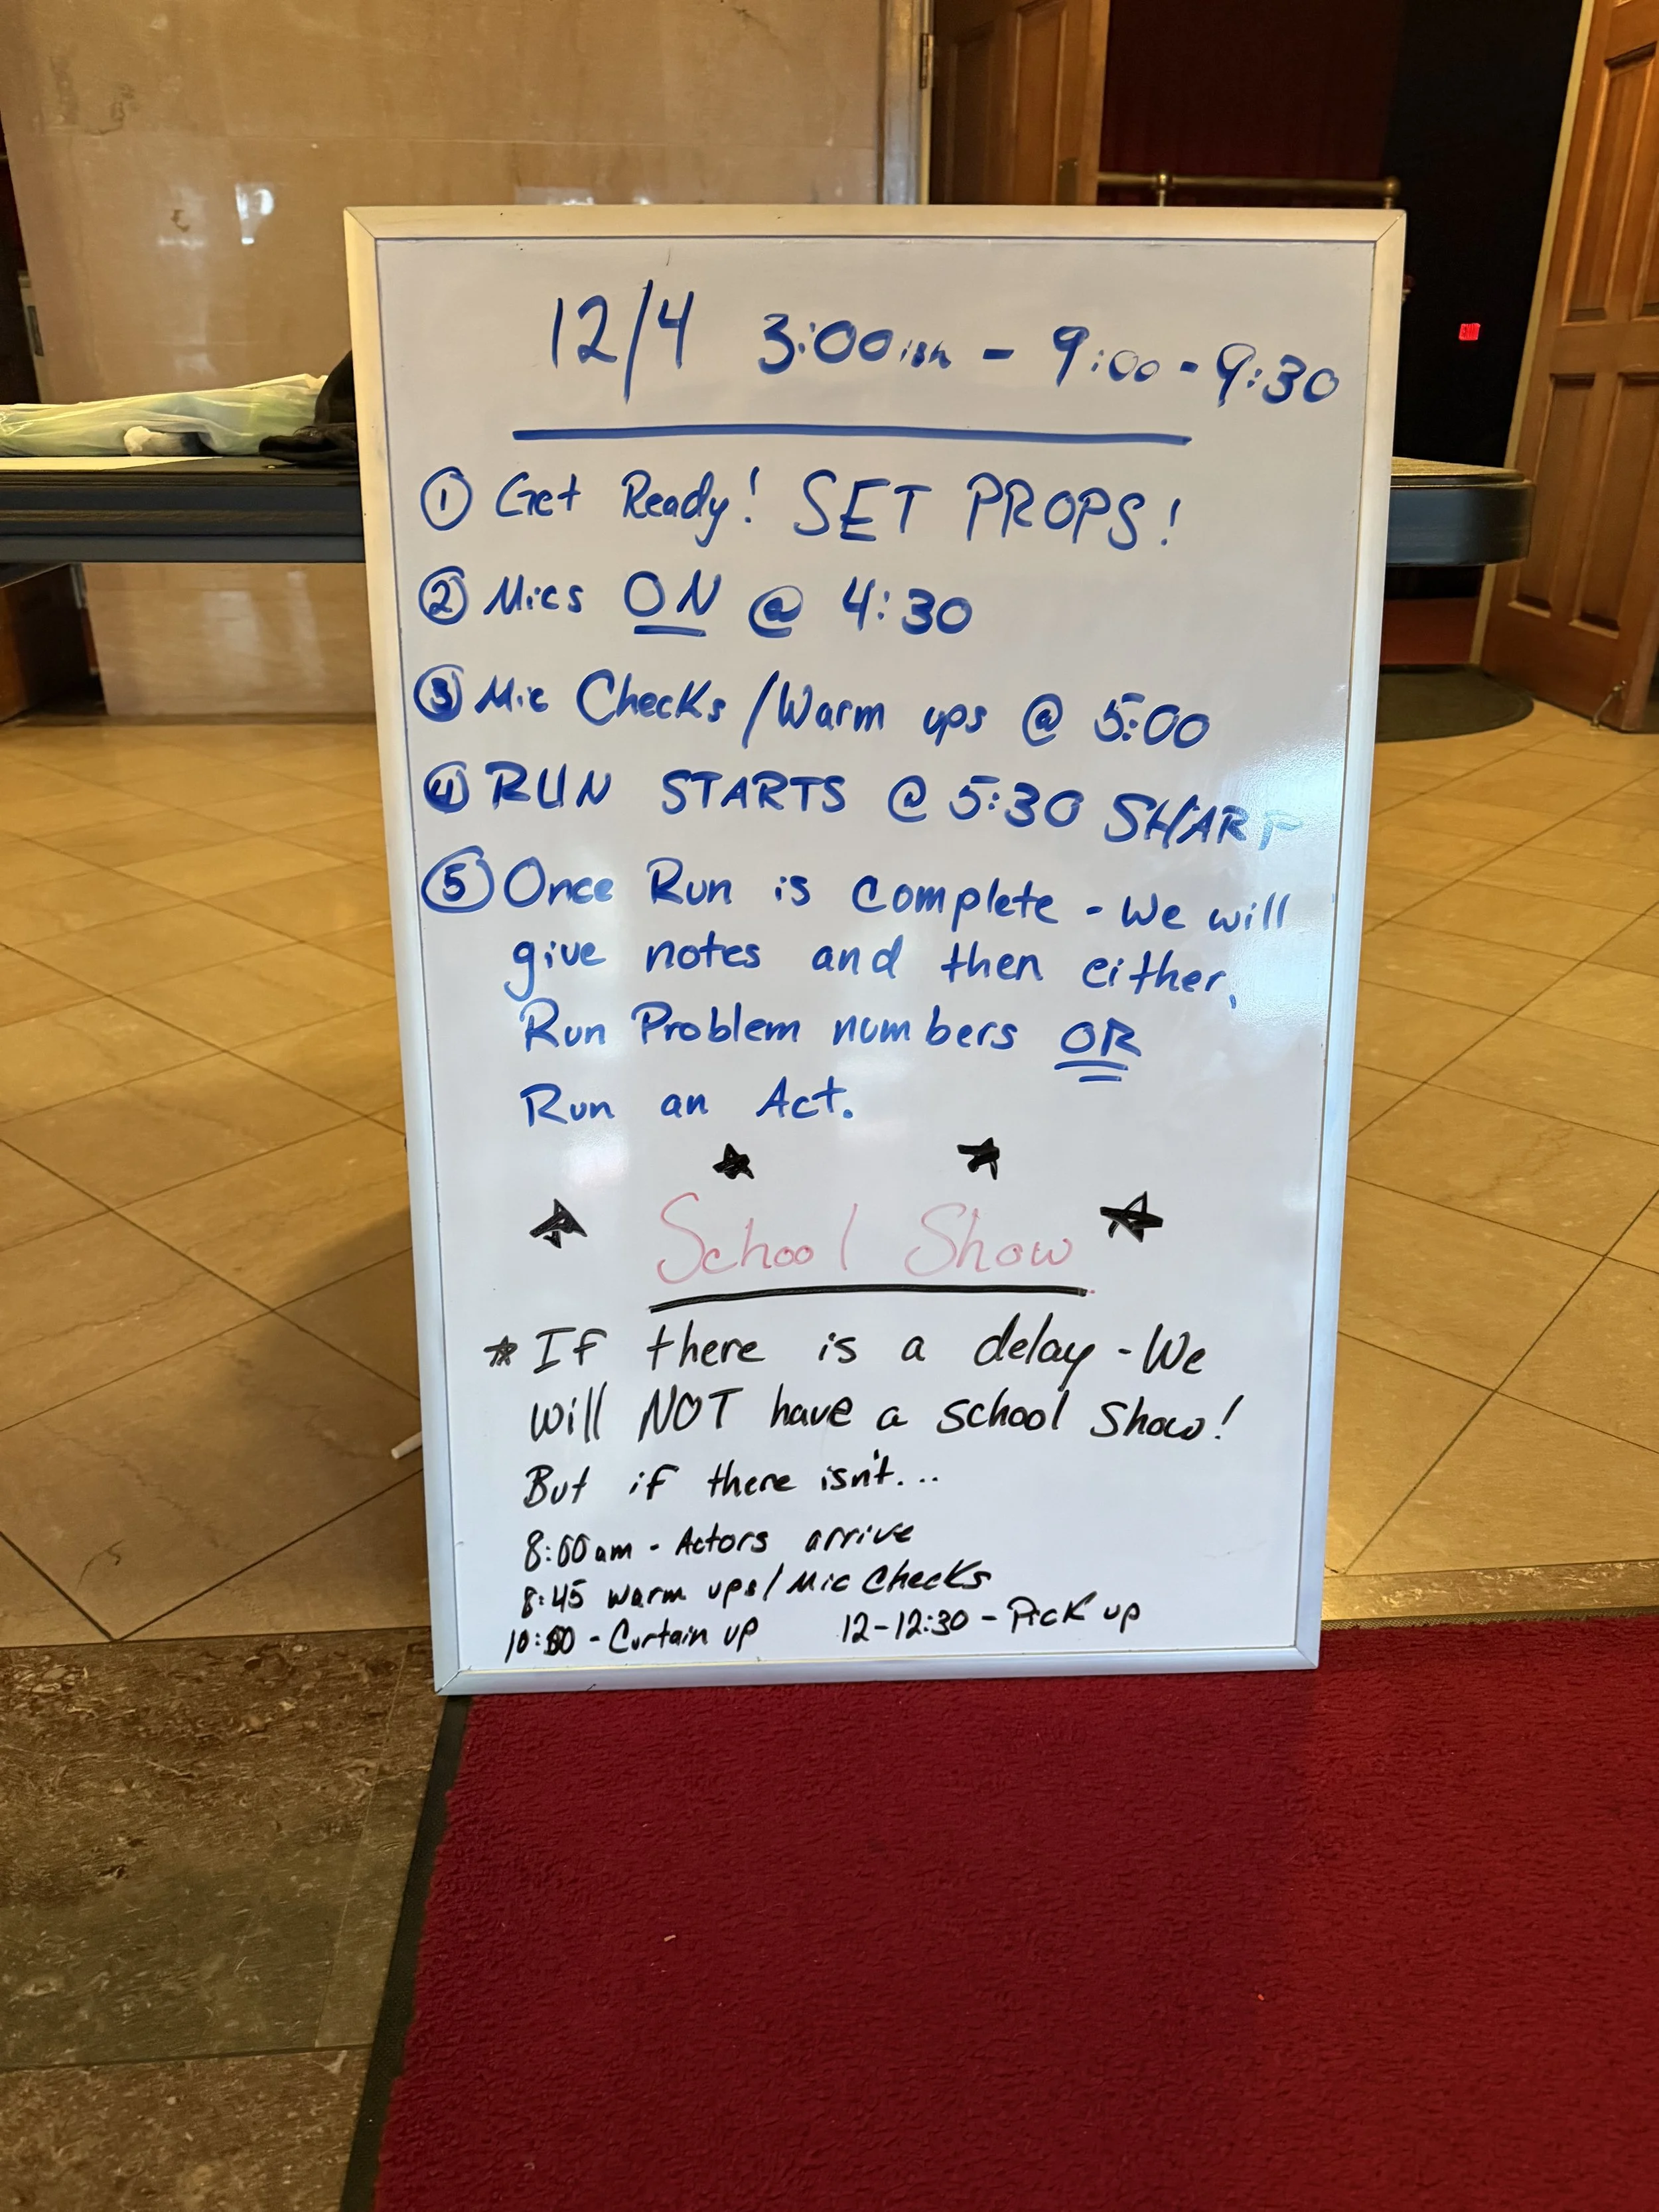 12/4 3:00ish - 9:00 - 9:30
① Get Ready! SET PROPS!
② Mics ON @ 4:30
③ Mic Checks/Warm ups @ 5:00
④ RUN STARTS @ 5:30 SHARP
⑤ Once Run is complete - We will
give notes and then either,
Run Problem numbers OR
Run an Act.
School Show
If there is a delay - We
will NOT have a school show!
But if there isn't...
8:00am - Actors arrive
8:45 warm ups/Mic Checks
10:00 - Curtain up 12-12:30 - Pick up
EXIT